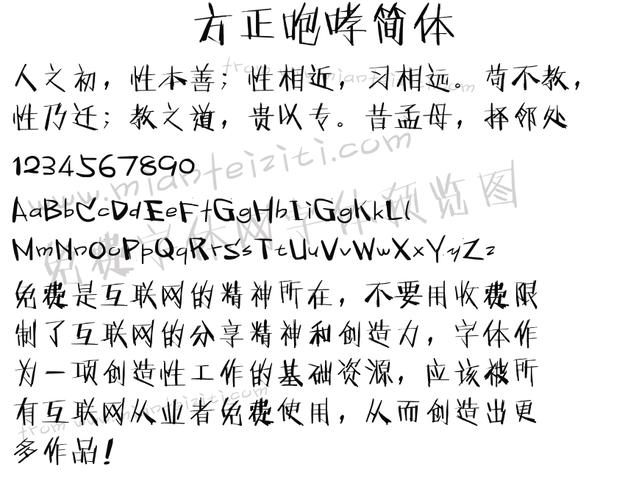 方正咆哮简体
人之初，性本善；性相近，习相远。苟不教，
性乃迁；教之道，贵以专。昔孟母，择邻处
1234567890
AaBbCcDdEeFfGgHhIiGgKkLl
MmNnOoPpQqRrSsTtUuVvWwXxYyZz
免费是互联网的精神所在，不要用收费限
制了互联网的分享精神和创造力，字体作
为一项创造性工作的基础资源，应该被所
有互联网从业者免费使用，从而创造出更
多作品！
www.mianfeiziti.com
免费字体网字体预览图
from www.mianfeiziti.com
from www.mianfeiziti.com